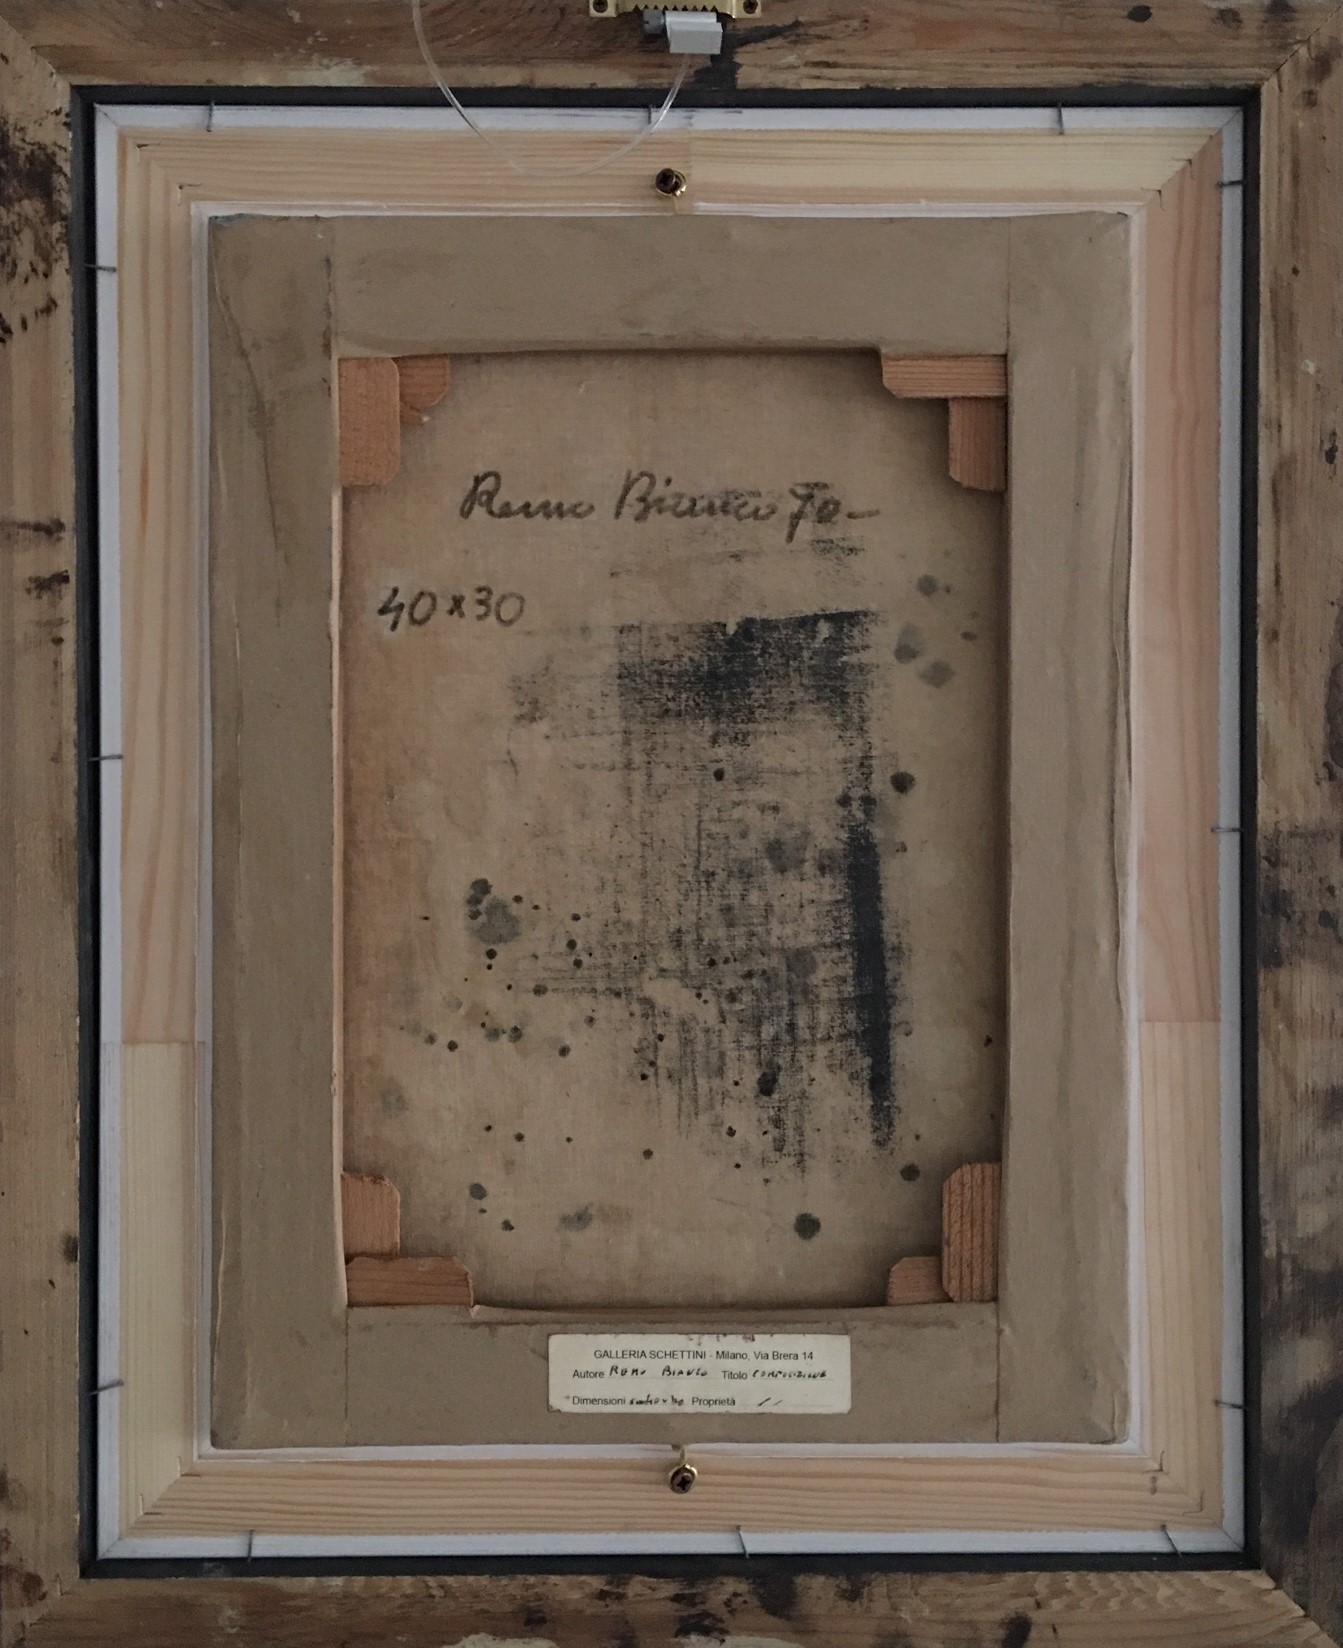 Remo Bianco 70-
40x30
GALLERIA SCHETTINI - Milano, Via Brera 14
Autore REMO BIANCO Titolo COMPOSIZIONE
Dimensioni Proprietà